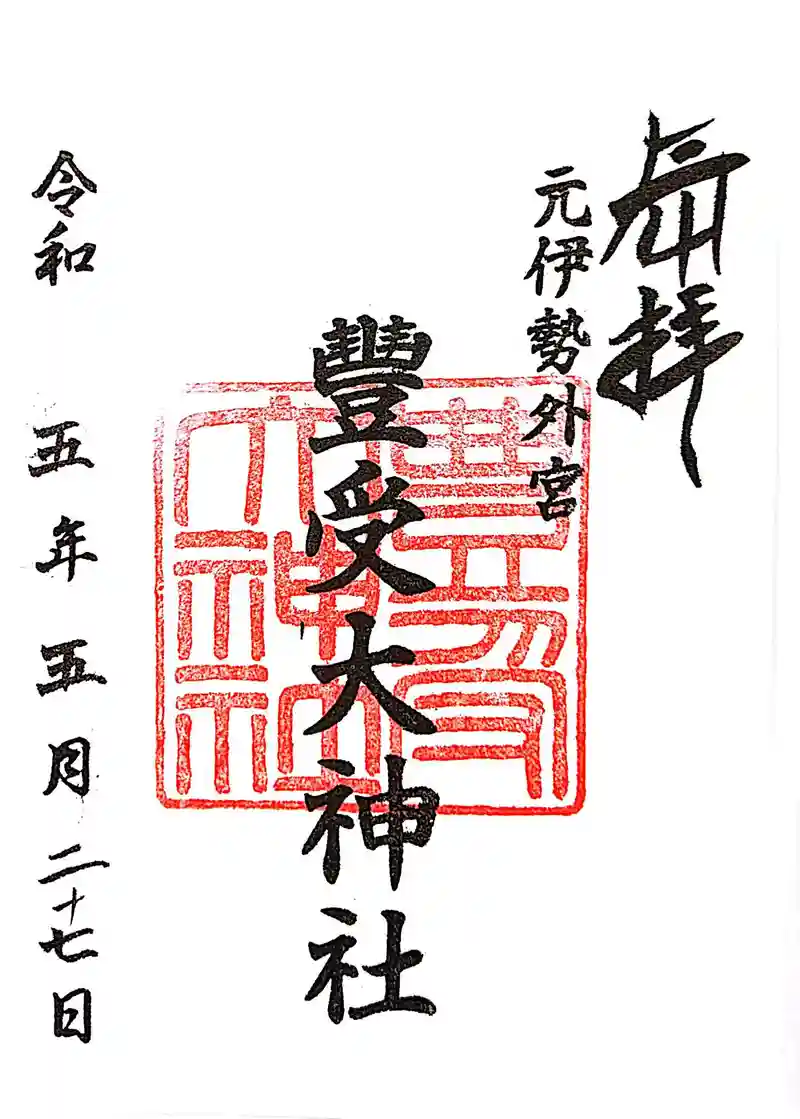 奉拝
元伊勢外宮
豐受大神社
豊受
大神社
令和 五年 五月 二十七日